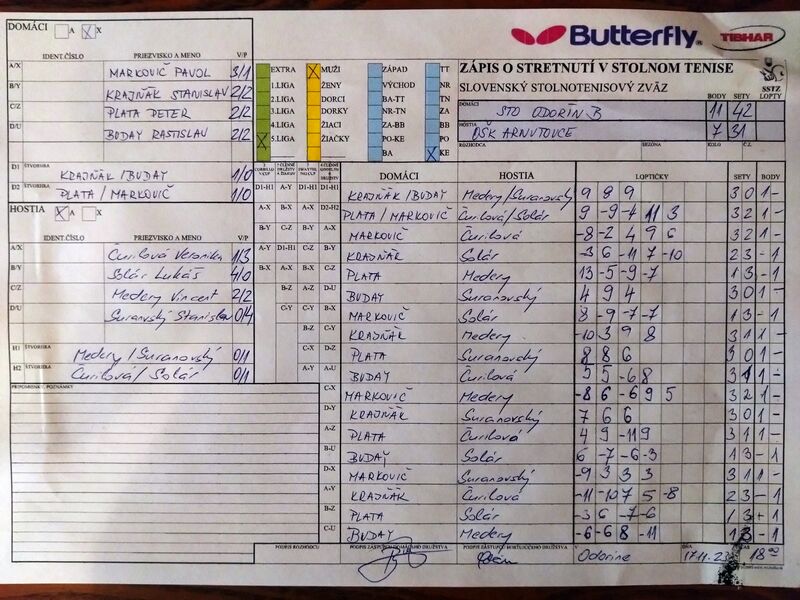 DOMÁCI A X
Butterfly TIBHAR
IDENT.ČÍSLO PRIEZVISKO A MENO V/P
A/X MARKOVIČ PAVOL 3/1
B/Y KRAJŇÁK STANISLAV 2/2
C/Z PLATA PETER 2/2
D/U BUDAY RASTISLAV 2/2
D1 ŠTVORHRA KRAJŇÁK/BUDAY 1/0
D2 ŠTVORHRA PLATA/MARKOVIČ 1/0
EXTRA
1.LIGA
2.LIGA
3.LIGA
4.LIGA
X 5.LIGA
X MUŽI
ŽENY
DORCI
DORKY
ŽIACI
ŽIAČKY
ZÁPAD
VÝCHOD
BA-TT
NR-ZA
ZA-BB
PO-KE
BA
TT
NR
TN
ZA
BB
PO
X KE
ZÁPIS O STRETNUTÍ V STOLNOM TENISE
SLOVENSKÝ STOLNOTENISOVÝ ZVÄZ
BODY SETY LOPTY SSTZ
DOMÁCI STO ODORÍN B 11 42
HOSTIA OŠK ARNUTOVCE 7 31
ROZHODCA SEZÓNA KOLO Č.
HOSTIA X A X
IDENT.ČÍSLO PRIEZVISKO A MENO V/P
A/X Čurilová Veronika 1/3
B/Y Solár Lukáš 4/0
C/Z Medery Vincent 2/2
D/U Suranovský Stanislav 0/4
H1 ŠTVORHRA Medery/Suranovský 0/1
H2 ŠTVORHRA Čurilová/Solár 0/1
PRIPOMIENKY, POZNÁMKY
DOMÁCI HOSTIA LOPTIČKY SETY BODY
D1-H1 KRAJŇÁK/BUDAY Medery/Suranovský 9 8 9 3 0 1 -
D2-H2 PLATA/MARKOVIČ Čurilová/Solár 9 -9 -4 11 3 3 2 1 -
A-X MARKOVIČ Čurilová -8 -2 4 9 6 3 2 1 -
B-Y KRAJŇÁK Solár -3 6 -11 7 -10 2 3 - 1
C-Z PLATA Medery 13 -5 -9 -7 1 3 - 1
D-U BUDAY Suranovský 4 9 4 3 0 1 -
A-Y MARKOVIČ Solár 8 -9 -7 -7 1 3 - 1
B-Z KRAJŇÁK Medery -10 3 9 8 3 1 1 -
C-U PLATA Suranovský 8 8 6 3 0 1 -
BUDAY Čurilová 5 5 -6 8 3 1 1 -
C-X MARKOVIČ Medery -8 6 -6 9 5 3 2 1 -
D-Y KRAJŇÁK Suranovský 7 6 6 3 0 1 -
A-Z PLATA Čurilová 4 9 -11 9 3 1 1 -
B-U BUDAY Solár 6 -7 -6 -3 1 3 - 1
D-X MARKOVIČ Suranovský -9 3 3 3 3 1 1 -
A-Y KRAJŇÁK Čurilová -11 -10 7 5 -8 2 3 - 1
B-Z PLATA Solár -3 6 -7 -6 1 3 - 1
C-U BUDAY Medery -6 -6 8 -11 1 3 - 1
PODPIS ROZHODCU PODPIS ZÁSTUPCU DOMÁCEHO DRUŽSTVA PODPIS ZÁSTUPCU HOSŤUJÚCEHO DRUŽSTVA Odorine DŇA 17.11.23 18 00